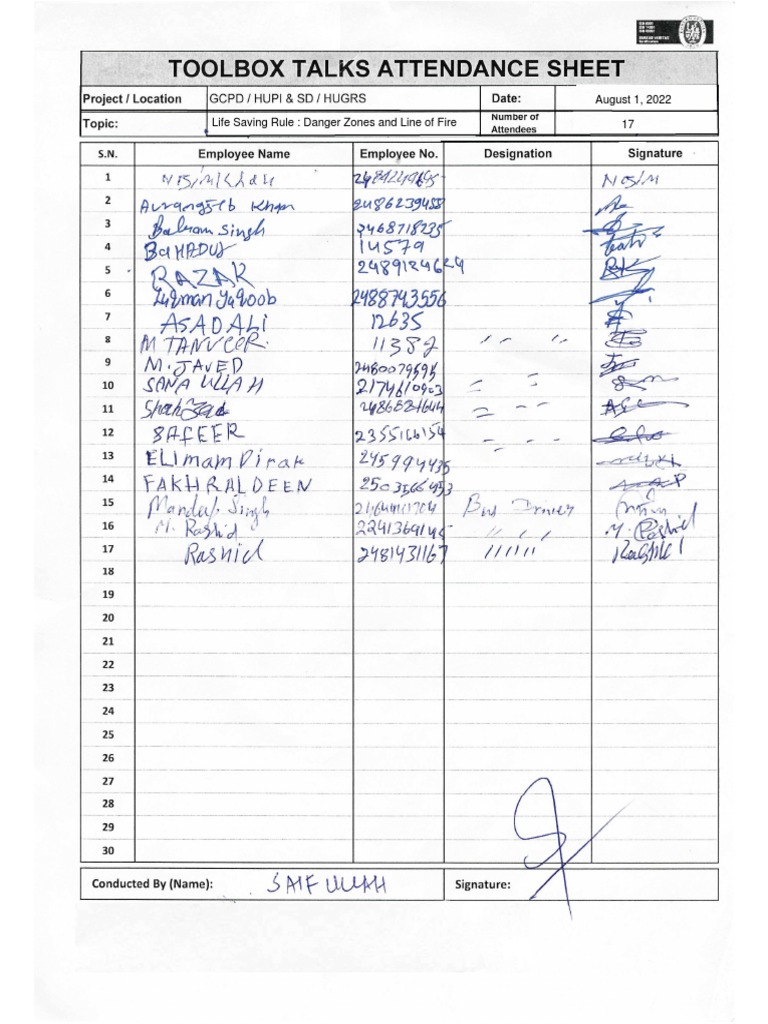 TOOLBOX TALKS ATTENDANCE SHEET
Project / Location GCPD / HUPI & SD / HUGRS Date: August 1, 2022
Topic: Life Saving Rule : Danger Zones and Line of Fire Number of Attendees 17
S.N. Employee Name Employee No. Designation Signature
1 Nosim
2 Aurangzeb Khan 2486239488
3 Balram Singh 2468718235
4 BAHADUR 14579
5 RAZAK 2489124624 RK
6 Luqman Yaqoob 2488743556
7 ASAD ALI 12635
8 M TANVEER. 11382
9 M. JAVED 2480079595
10 SANA ULLAH 2174610903
11 Shahzad 2486821644
12 SAFEER 2355166154
13 ELimam Dirak 245994435
14 FAKHRALDEEN 2503566453
15 Mandeep Singh Bus Driver
16 M. Rashid 2241369145 " " " M. Rashid
17 Rashid 2481431167 " " " Rashid
18
19
20
21
22
23
24
25
26
27
28
29
30
Conducted By (Name): SAIF ULLAH Signature: